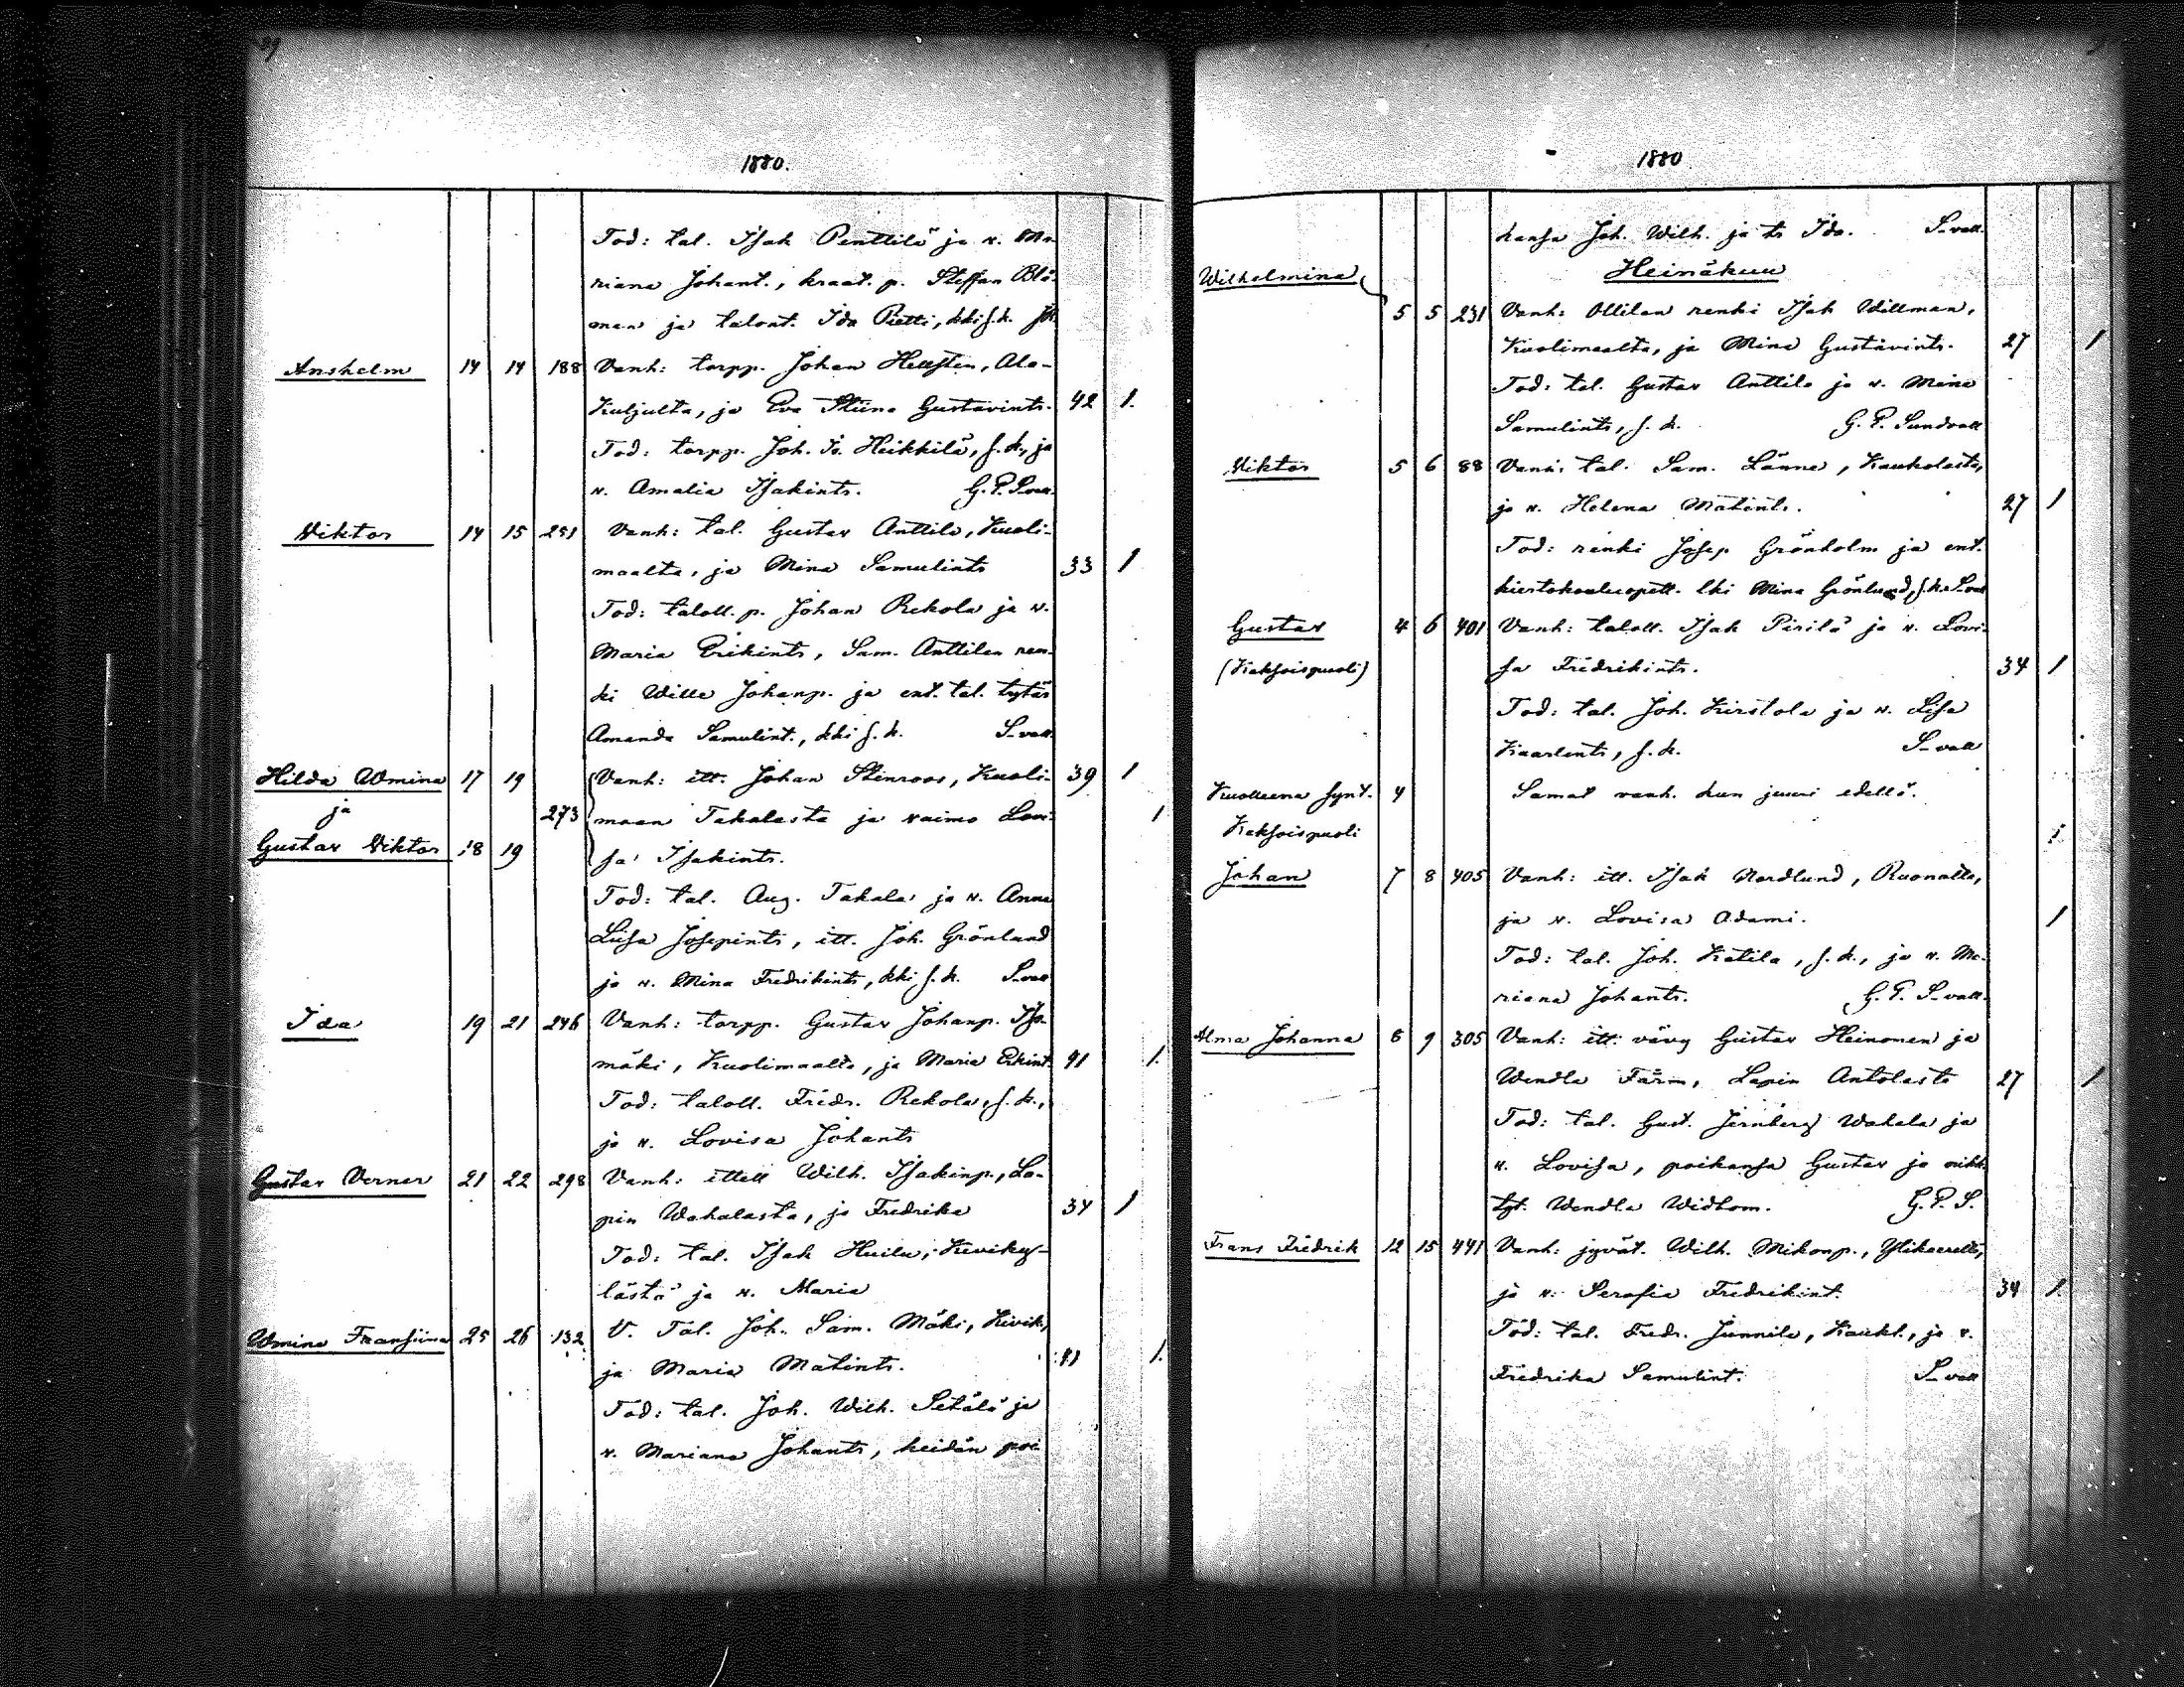 1880.
Tod: tal. Isak Penttilä ja v. Ma-
riana Johant., kraat. p. Steffan Blö-
man ja talont. Ida Pietti, kki s.k.
Anshelm 14 14 188 Vanh: torpp. Johan Hellsten, Ala-
Kuljulta, ja Eva Stiina Gustavints. 42 1.
Tod: torpp. Joh. Is. Heikkilä, s.k., ja
v. Amalia Isakints. G. P. S-vall.
Viktor 14 15 251 Vanh: tal. Gustav Anttila, Kuoli-
maalta, ja Mina Samulints 33 1
Tod: taloll. p. Johan Rekola ja v.
Maria Erikints, Sam. Anttilan ren-
ki Wille Johanp. ja ent. tal. tytär
Amanda Samulint., kki s.k. S-vall
Hilda Wmina 17 19 Vanh: itt. Johan Stenroos, Kuoli- 39 1
ja 273 maan Takalasta ja vaimo Lovi- 1
Gustav Viktor 18 19 sa Isakints.
Tod: tal. Aug. Takala ja v. Anna
Liisa Josepints, itt. Joh. Grönlund
ja v. Mina Fredrikints, kki s.k. S-vall
Ida 19 21 246 Vanh: torpp. Gustav Johanp. Iso-
mäki, Kuolimaalta, ja Maria Erkint. 41 1.
Tod: taloll. Fredr. Rekola, s.k.,
ja v. Lovisa Johants
Gustav Verner 21 22 298 Vanh: ittell Wilh. Isakinp., La-
pin Wahalasta, ja Fredrika 34 1
Tod: tal. Isak Huilu, Kiviky-
lästä ja v. Maria
Wmina Fransiina 25 26 132 V. Tal. Joh. Sam. Mäki, Kivik.,
ja Maria Matints. 41 1.
Tod: tal. Joh. Wilh. Setälä ja
v. Mariana Johants, heidän poi-
1880
kansa Joh. Wilh. ja ts Ida. S-vall.
Heinäkuu
Wilhelmina
5 5 231 Vanh: Ollilan renki Isak Willman,
Kuolimaalta, ja Mina Gustavints. 27 1
Tod: tal. Gustav Anttila ja v. Mina
Samulints, s.k. G. P. Sundvall
Viktor 5 6 88 Vanh: tal. Sam. Länne, Kaukolasta,
ja v. Helena Matints. 27 1
Tod: renki Josep Grönholm ja ent.
kiertokouluopett. lki Mina Grönlund, s.k. S-vall
Gustav 4 6 401 Vanh: taloll. Isak Pirilä ja v. Lovi-
(Kaksoispuoli) sa Fredrikints. 34 1
Tod: tal. Joh. Kirstola ja v. Lisa
Kaarlents, s.k. S-vall
Kuolleena synt. 4 Samat vanh. kun juuri edellä.
Kaksoispuoli 1
Johan 7 8 405 Vanh: itt. Isak Nordlund, Ruonalta,
ja v. Lovisa Adami. 1
Tod: tal. Joh. Katila, s.k., ja v. Ma-
riana Johants. G. P. S-vall.
Alma Johanna 6 9 305 Vanh: itt. vävy Gustav Heinonen ja
Wendla Färm, Lapin Antolasta 27 1
Tod: tal. Gust. Jernberg Wahala ja
v. Lovisa, poikansa Gustav ja
tyt. Wendla Widbom. G. P. S.
Frans Fredrik 12 15 441 Vanh: jyvät. Wilh. Mikonp.,
ja v. Serafia Fredrikint. 34 1.
Tod: tal. Fredr. Junnila, Kaukl., ja v.
Fredrika Samulint. S-vall